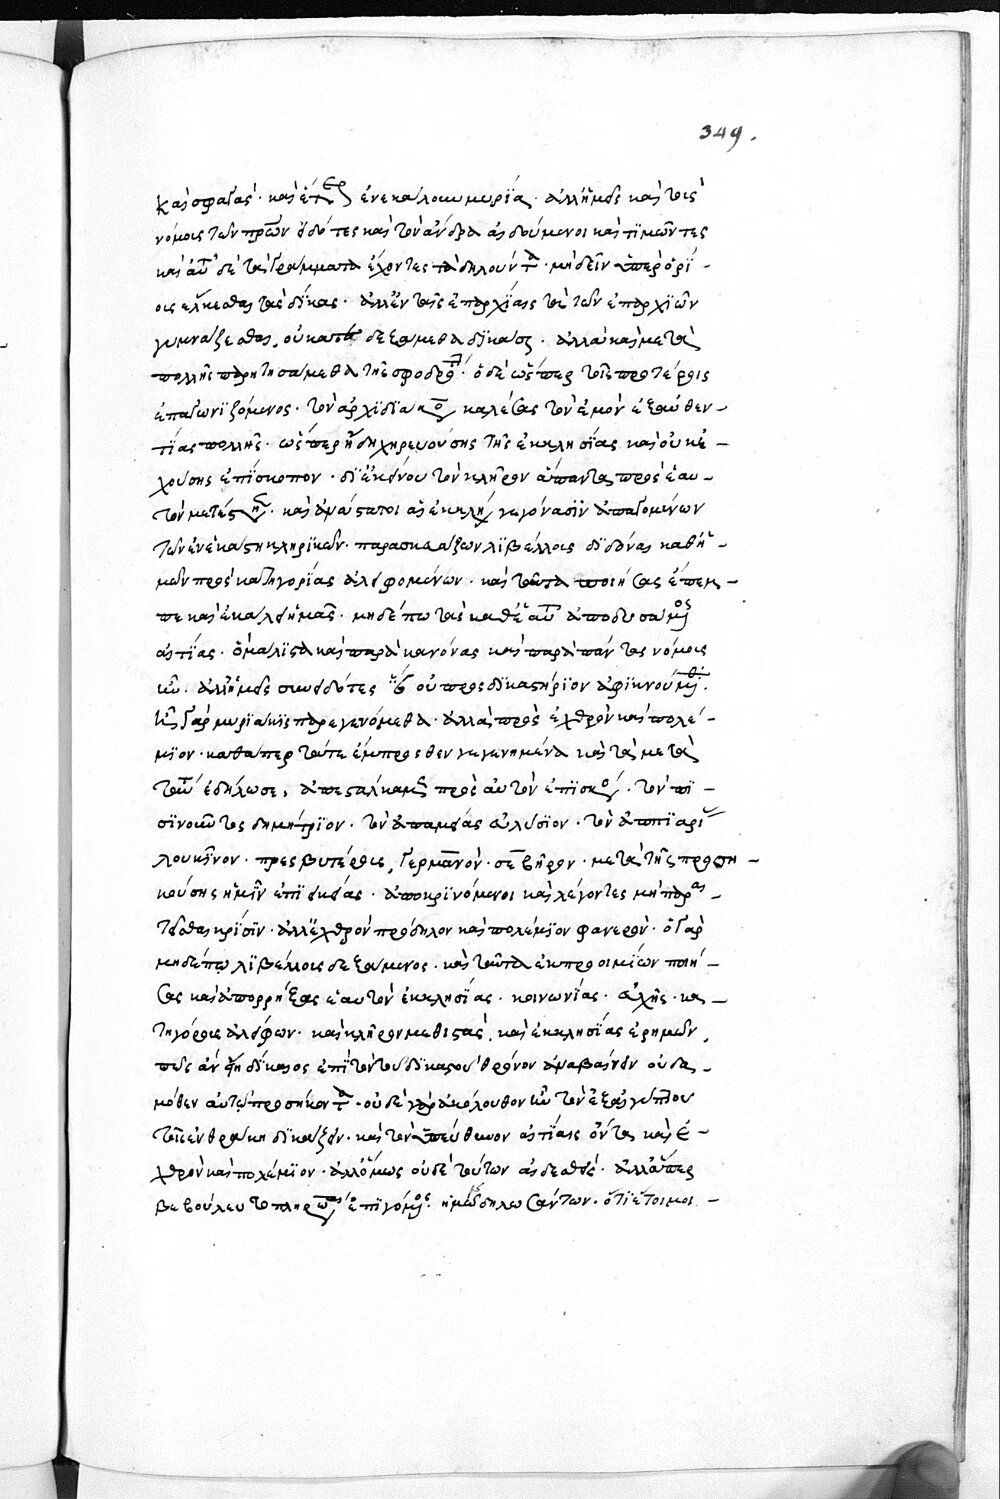 349.
καὶ σφαγὰς· καὶ ἕτερα ἐνεκαλουν μυρία· ἀλλ' ἡμεῖς καὶ τοῖς
νόμοις τῶν πρων εἰδότες καὶ τὸν ἄνδρα αἰδούμενοι καὶ τιμῶντες
καὶ αὐτοῦ δὲ τὰ γράμματα ἔχοντες τὰ δηλοῦντα· μὴ δεῖν ὑπερορί-
οις ἕλκεσθαι τὰς δίκας· ἀλλ' ἐν ταῖς ἐπαρχίαις τὰ τῶν ἐπαρχιῶν
γυμνάζεσθαι, οὐ κατεδεξάμεθα δικάσαι· ἀλλὰ καὶ μετὰ
πολλῆς παρῃτησάμεθα τῆς σφοδρότητος· ὁ δὲ ὥσπερ τοῖς προτέροις
ἐπαγωνιζόμενος· τὸν ἀρχιδιάκονον καλέσας τὸν ἐμὸν ἐξ αὐθεν-
τίας πολλῆς· ὥσπερ ἤδη χηρευούσης τῆς ἐκκλησίας καὶ οὐκ ἐ-
χούσης ἐπίσκοπον· δι' ἐκείνου τὸν κλῆρον ἅπαντα πρὸς ἑαυ-
τὸν μετέστησε· καὶ ἀνάστατοι αἱ ἐκκλησίαι γεγόνασιν ἀπαγομένων
τῶν ἐν ἑκάστη κληρικῶν· παρασκευαζομένων λιβέλλους διδόναι καθ' ἡ-
μῶν πρὸς κατηγορίας ἀλειφομένων· καὶ ταῦτα ποιήσας ἔπεμ-
πε καὶ ἐκάλει ἡμᾶς· μηδέπω τὰς καθ' ἑαυτοῦ ἀποδυσάμενος
αἰτίας· ὃ μάλιστα καὶ παρὰ κανόνας καὶ παρὰ πάντας νόμους
ἦν· ἀλλ' ἡμεῖς συνειδότες ὅτι οὐ πρὸς δικαστήριον ἀφικνούμεθα·
ἦ γὰρ μυριάκις παρεγενόμεθα· ἀλλὰ πρὸς ἐχθρὸν καὶ πολέ-
μιον· καθάπερ τά τε ἔμπροσθεν γεγενημένα καὶ τὰ μετὰ
ταῦτα ἐδήλωσε, ἀπεστάλκαμεν πρὸς αὐτὸν ἐπισκόπους· τὸν πι-
σινοῦντος δημήτριον· τὸν ἀπαμείας εὐλύσιον· τὸν ἀππιαρί
λουκῖνον· πρεσβυτέρους, γερμανὸν· σεβῆρον· μετὰ τῆς προση-
κούσης ἡμῖν ἐπιεικείας· ἀποκρινόμενοι καὶ λέγοντες μὴ παραι-
τεῖσθαι κρίσιν· ἀλλ' ἐχθρὸν πρόδηλον καὶ πολέμιον φανερὸν· ὁ γὰρ
μηδέπω λιβέλλους δεξάμενος· καὶ ταῦτα ἐκ προοιμίων ποιή-
σας καὶ ἀπορρήξας ἑαυτὸν ἐκκλησίας· κοινωνίας· εὐχῆς· κα-
τηγόρους ἀλείφων· καὶ κλῆρον μεθιστὰς, καὶ ἐκκλησίας ἐρημῶν,
πῶς ἂν εἴη δίκαιος ἐπὶ τὸν τοῦ δικαστοῦ θρόνον ἀναβαίνειν οὐδα-
μόθεν αὐτῷ προσήκοντα· οὐδὲ γὰρ ἀκόλουθον ἦν τὸν ἐξ αἰγύπτου
τοῖς ἐν θράκη δικάζειν· καὶ τὸν ὑπεύθυνον αἰτίαις ὄντα καὶ ἐ-
χθρὸν καὶ πολέμιον· ἀλλ' ὅμως οὐδὲ τούτων αἰδεσθεὶς· ἀλλ' ἅπερ
βεβούλευτο πληρῶσαι ἐπειγόμενος· ἡμῶν δηλωσάντων· ὅτι ἕτοιμοι-